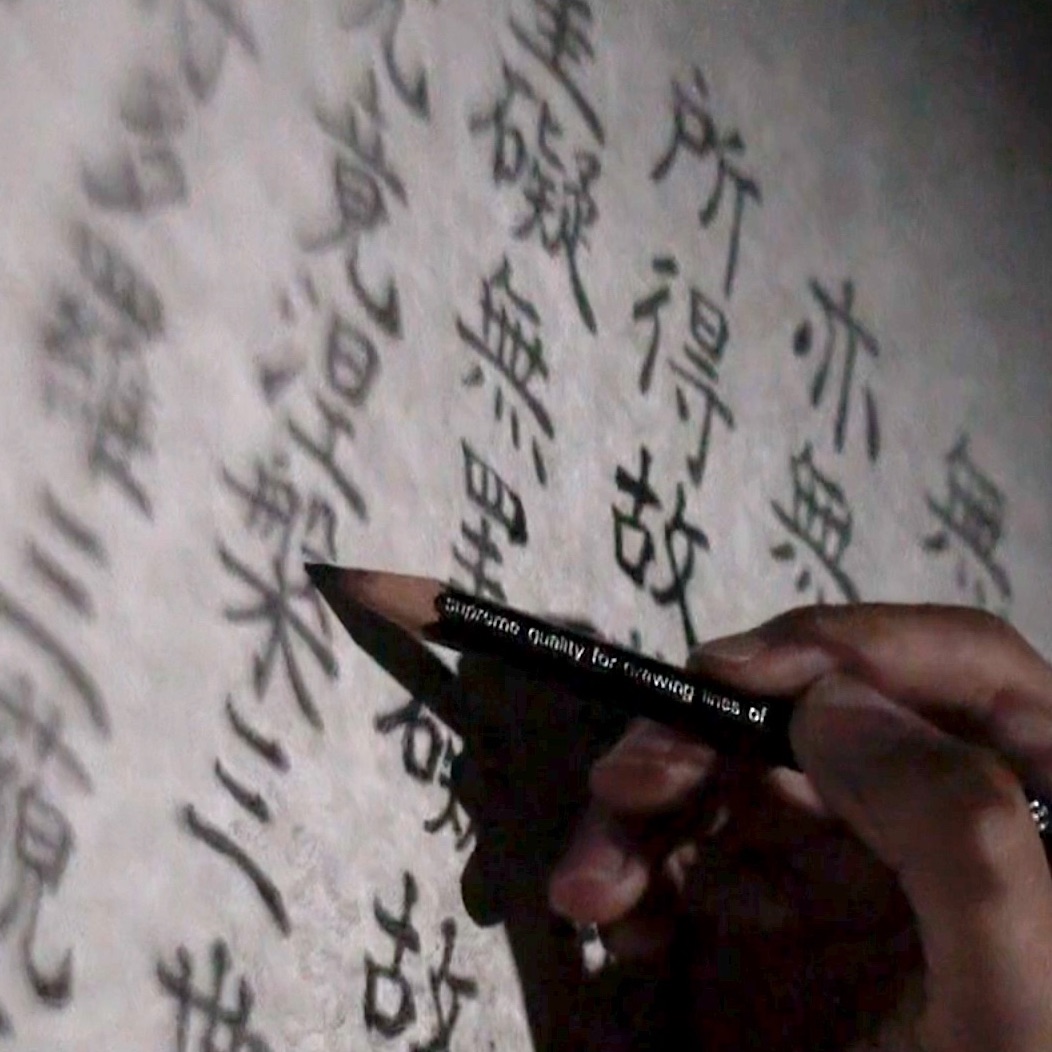 無
亦無
所得故
罣礙無罣礙故
究竟涅槃三世
多羅三藐
supreme quality for drawing lines of